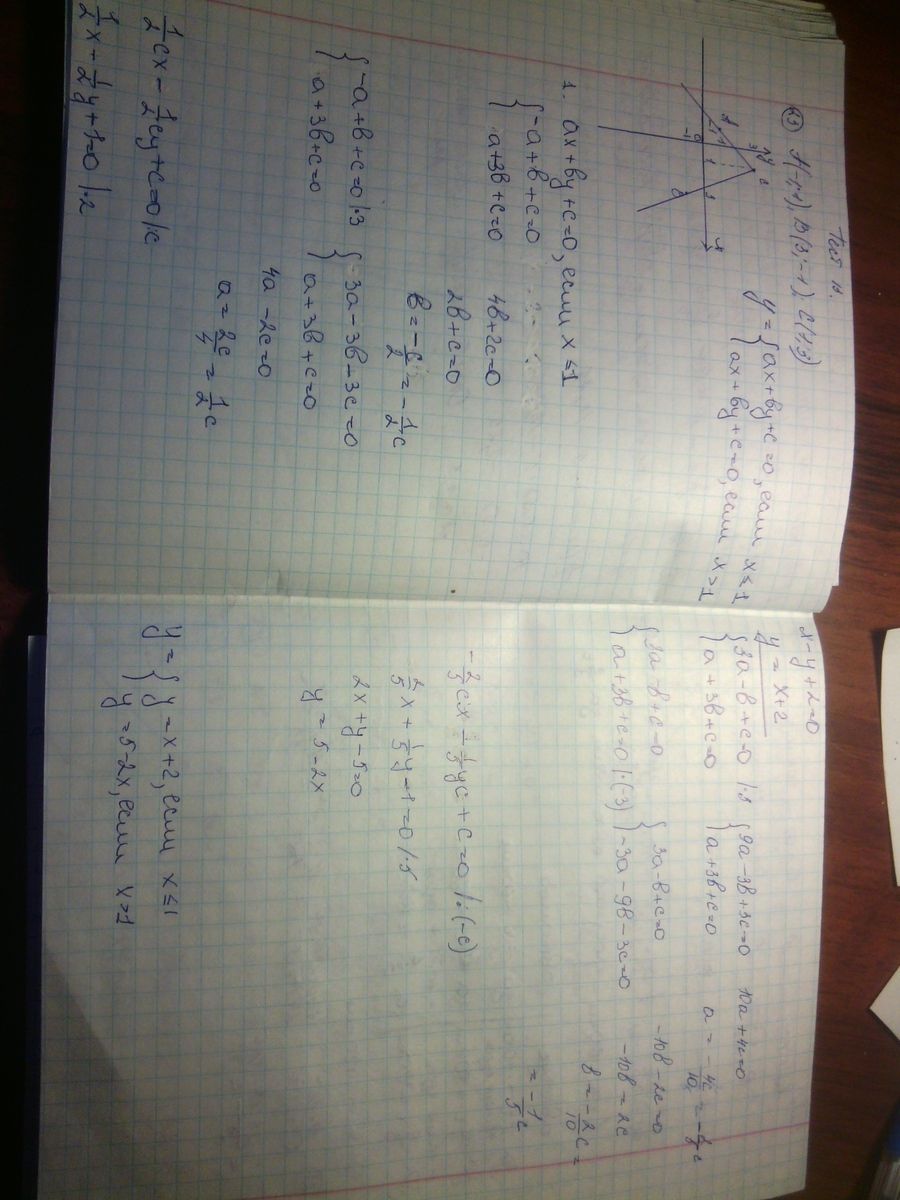 Тест 12.
C3 A(-1;1), B(3;-1), C(1;3)
y = { ax+by+c=0, если x ≤ 1
{ ax+by+c=0, если x >1
1. ax+by+c=0, если x ≤1
{ -a+b+c=0
{ a+3b+c=0
4b+2c=0
2b+c=0
b = -c/2 = -1/2c
{ -a+b+c=0 |·3
{ a+3b+c=0
{ 3a-3b-3c=0
{ a+3b+c=0
4a-2c=0
a = 2c/4 = 1/2 c
1/2cx - 1/2cy+c=0 |:c
1/2x - 1/2y+1=0 |·2
x-y+2=0
y = x+2
{ 3a-b+c=0 |·3
{ a+3b+c=0
{ 9a-3b+3c=0
{ a+3b+c=0
10a+4c=0
a = -4c/10 = -2/5c
{ 3a-b+c=0
{ a+3b+c=0 |·(-3)
{ 3a-b+c=0
{ -3a-9b-3c=0
-10b-2c=0
-10b = 2c
b = -2/10c =
= -1/5c
-2/5cx - 1/5yc + c=0 |:(-c)
2/5x + 1/5y-1=0 |·5
2x+y-5=0
y = 5-2x
y = { y = x+2, если x ≤1
{ y = 5-2x, если x>1